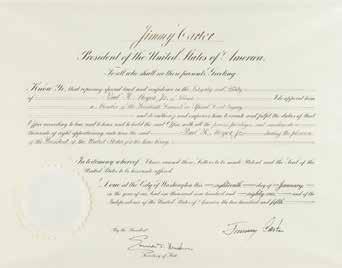 Jimmy Carter
President of the United States of America.
To all who shall see these presents, Greeting:
Know Ye, that reposing special trust and confidence in the Integrity and Ability
of Paul H. Jr., of I do appoint him
a Member of the President's Council on
and do authorize and empower him to execute and fulfil the duties of that
Office according to law, and to have and to hold the said Office, with all the powers, privileges, and emoluments
thereunto of right appertaining unto him the said Paul H. Jr., during the pleasure
of the President of the United States for the time being.
In testimony whereof, I have caused these Letters to be made Patent and the Seal of the
United States to be hereunto affixed.
Done at the City of Washington this eighteenth day of January
in the year of our Lord one thousand nine hundred and eighty-one and of the
Independence of the United States of America the two hundred and fifth.
By the President:
Jimmy Carter
Secretary of State